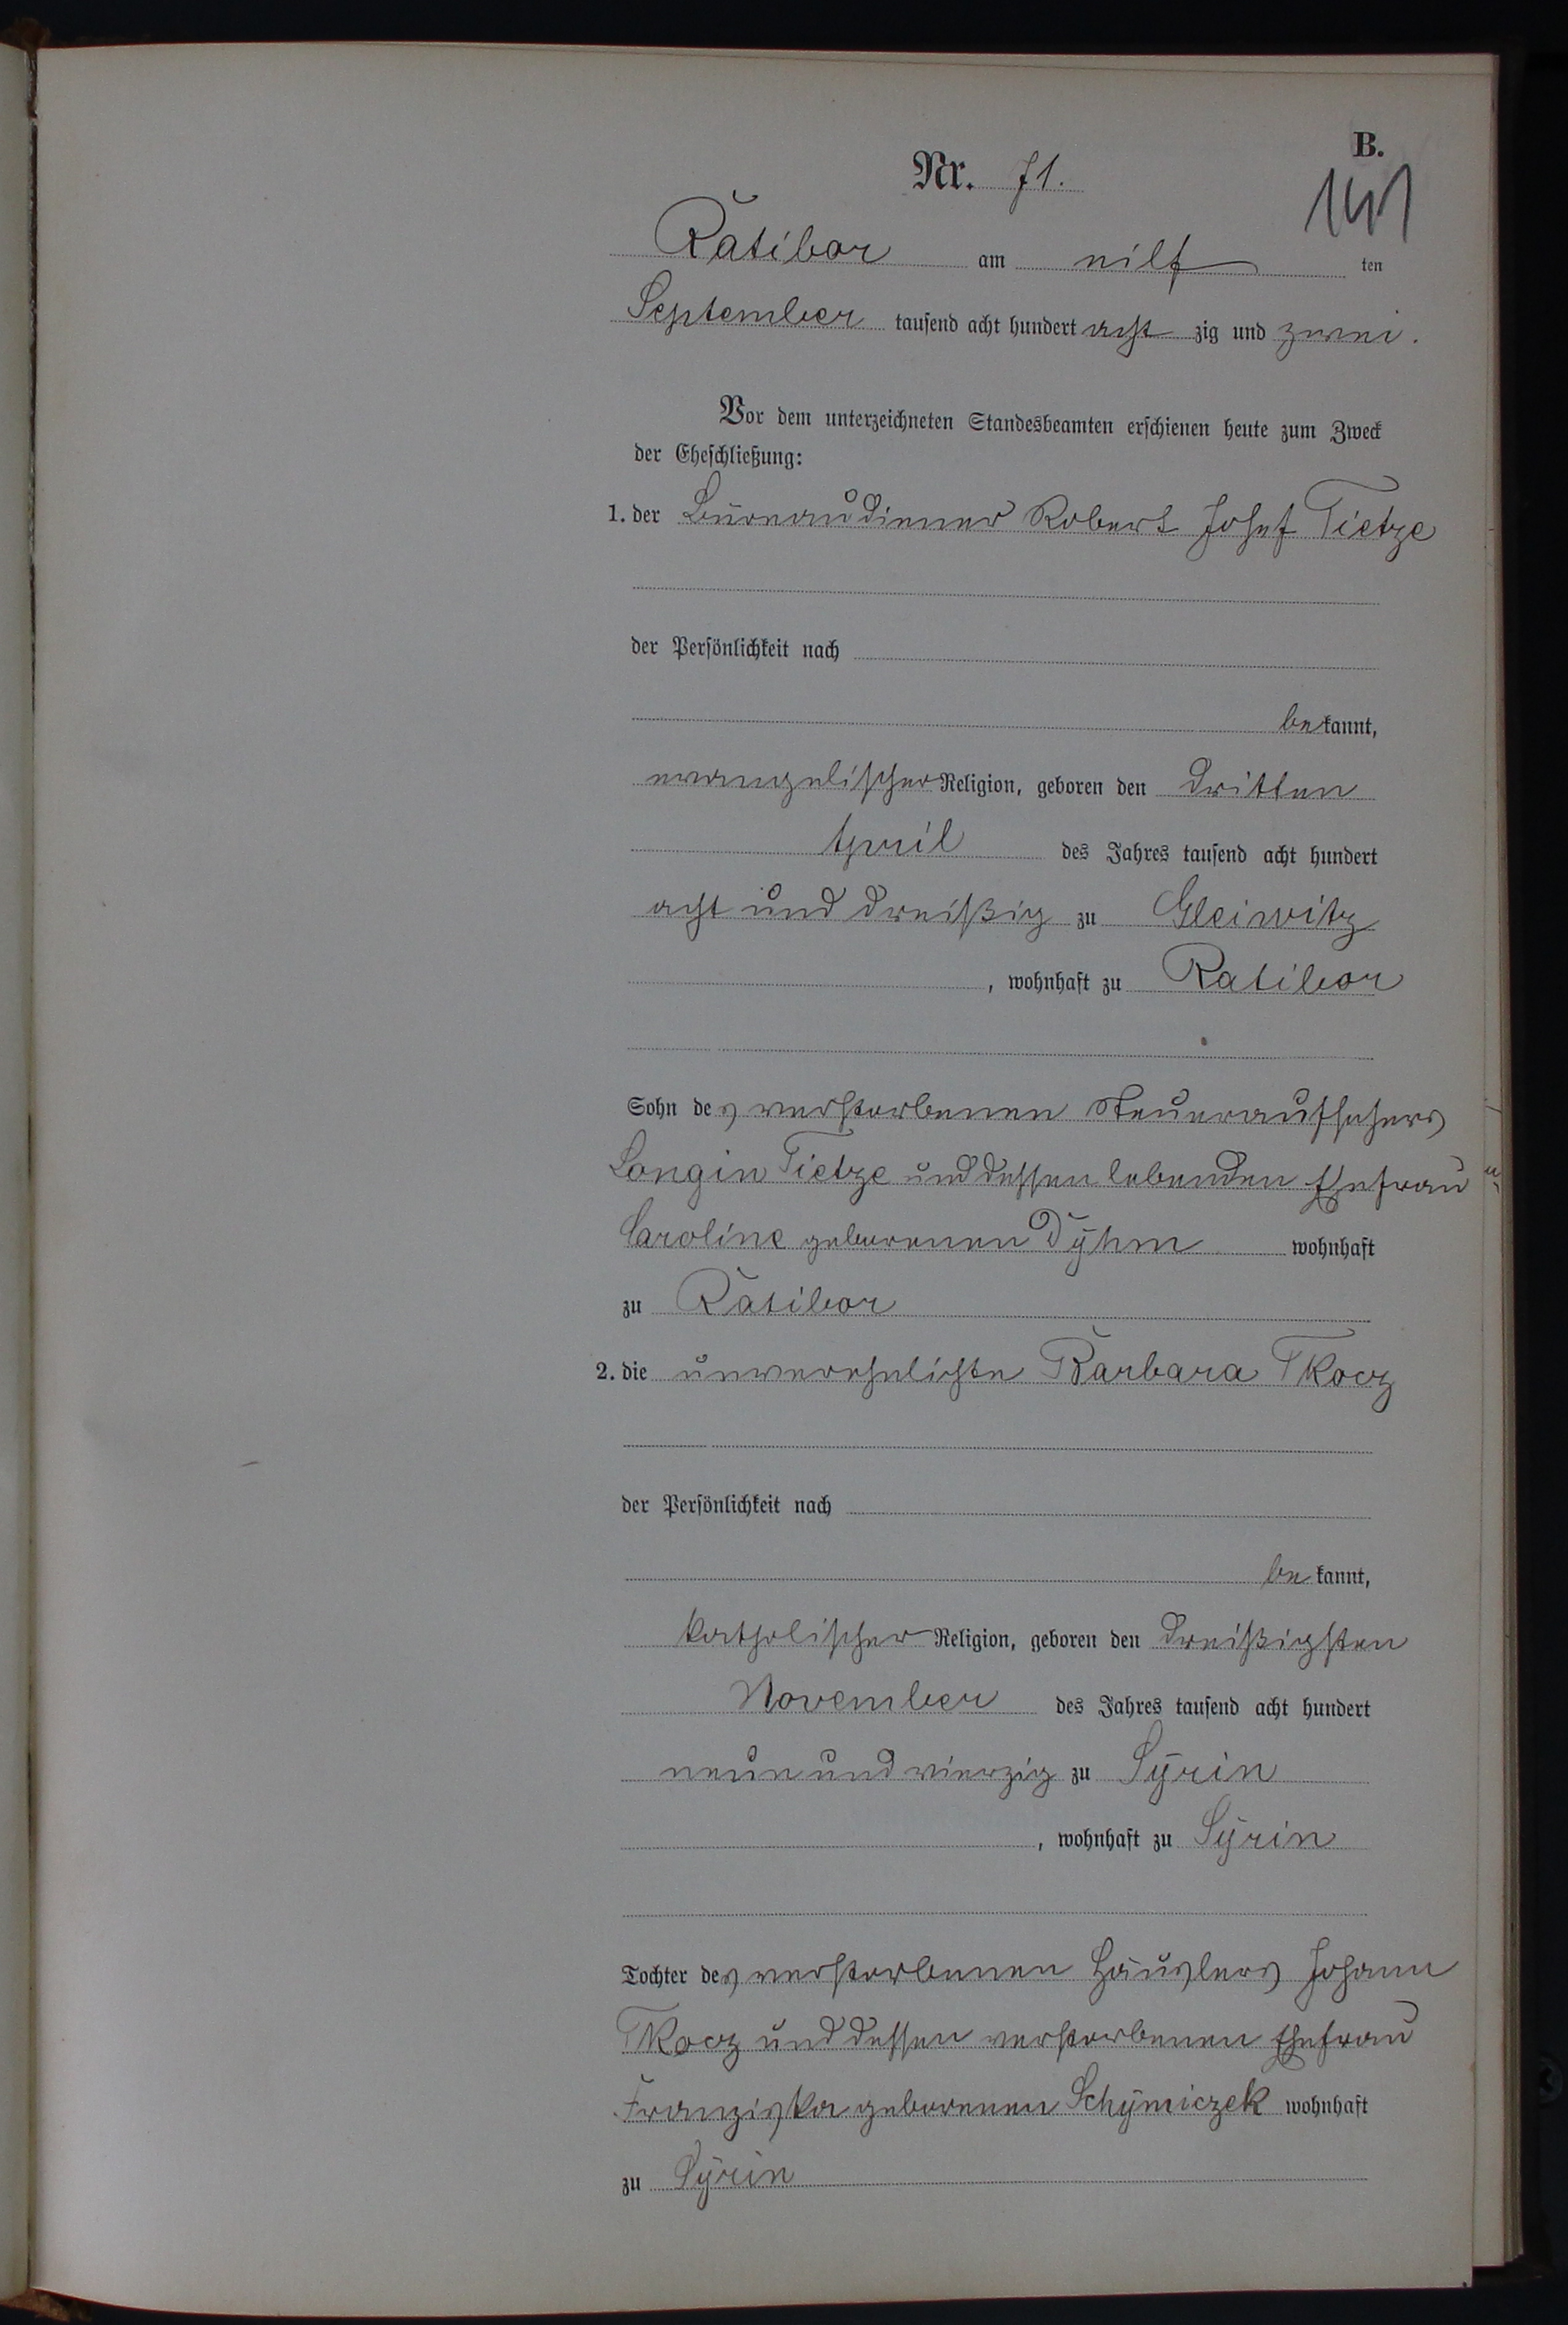 B.
Nr. 71.
141
Ratibor am eilf ten
September tausend acht hundert acht zig und zwei.
Vor dem unterzeichneten Standesbeamten erschienen heute zum Zweck
der Eheschließung:
1. der Büreaudiener Robert Josef Tietze
der Persönlichkeit nach
be kannt,
evangelischer Religion, geboren den dritten
April des Jahres tausend acht hundert
acht und dreißig zu Gleiwitz
, wohnhaft zu Ratibor
Sohn des verstorbenen Steueraufsehers
Longin Tietze und dessen lebenden Ehefrau
Caroline geborenen Dÿhm wohnhaft
zu Ratibor
2. die unverehelichte Barbara Tkocz
der Persönlichkeit nach
be kannt,
katholischer Religion, geboren den dreißigsten
November des Jahres tausend acht hundert
neun und vierzig zu Sÿrin
, wohnhaft zu Sÿrin
Tochter des verstorbenen Häuslers Johann
Tkocz und dessen verstorbenen Ehefrau
Franziska geborenen Schÿmiczek wohnhaft
zu Sÿrin